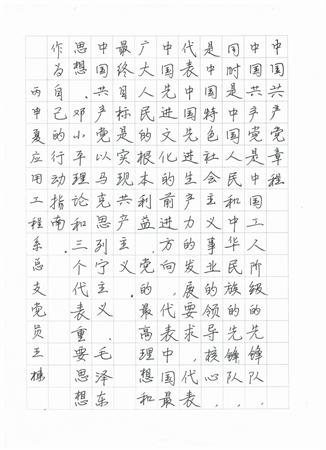 中国共产党章程
中国共产党是中国工人阶级的先锋队,
同时是中国人民和中华民族的先锋队,
是中国特色社会主义事业的领导核心,
代表中国先进生产力的发展要求,代表
中国先进文化的前进方向,代表中国最
广大人民的根本利益.党的最高理想和
最终目标是实现共产主义.
中国共产党以马克思列宁主义,毛泽东
思想.邓小平理论和三个代表重要思想
作为自己的行动指南.
丙申夏应用工程系总支党员王